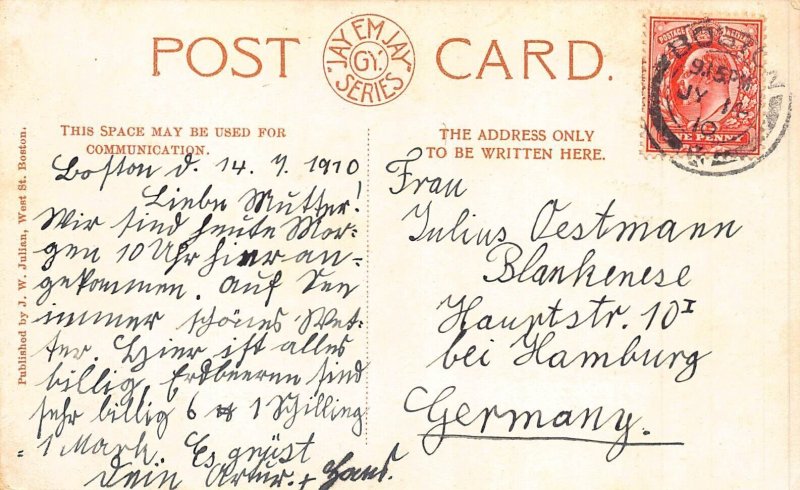 POST CARD.
"JAY EM JAY"
GY.
SERIES
THIS SPACE MAY BE USED FOR
COMMUNICATION.
THE ADDRESS ONLY
TO BE WRITTEN HERE.
Published by J. W. Julian, West St. Boston.
POSTAGE
PENNY
BOSTON
9.15PM
JY 14
10
Boston d. 14. 7. 1910
Liebe Mutter!
Wir sind heute Mor-
gen 10 Uhr hier an-
gekommen. Auf See
immer schönes Wet-
ter. Hier ist alles
billig Erdbeeren sind
sehr billig 6 ℔ 1 Schilling
= 1 Mark. Es grüst
Dein Artur. + Hans.
Frau
Julius Oestmann
Blankenese
Hauptstr. 10 I
bei Hamburg
Germany.